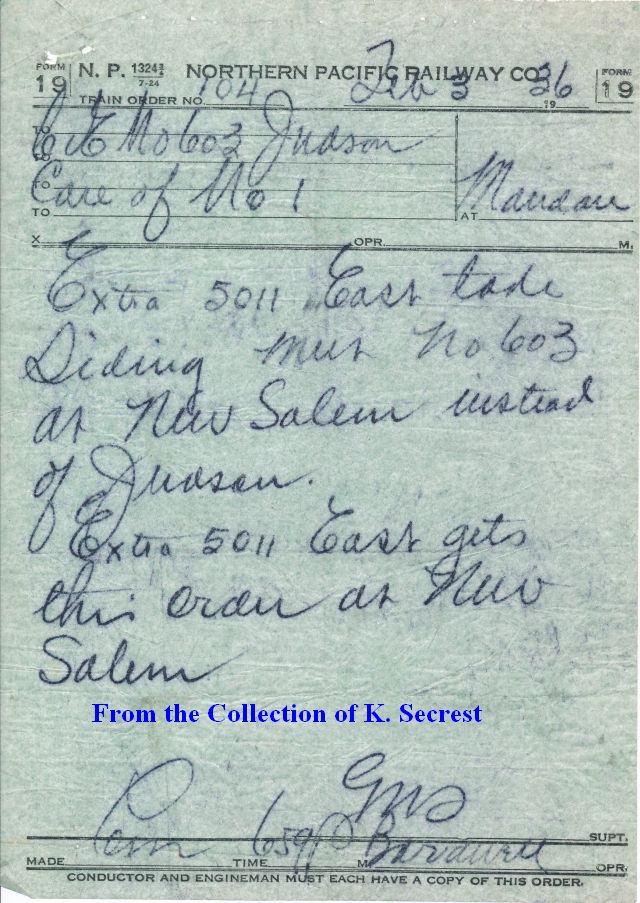 FORM 19 N. P. 1324½ 7-24 NORTHERN PACIFIC RAILWAY CO. FORM 19
TRAIN ORDER NO. 104 Feb 3 1936
TO C&E No 603 Judson
TO
TO Care of No 1
TO AT Mandan
X OPR. M.
Extra 5011 East take
Siding meet No 603
at New Salem instead
of Judson.
Extra 5011 East gets
this order at New
Salem
From the Collection of K. Secrest
SUPT.
MADE Com TIME 659 P M Bardwell OPR.
CONDUCTOR AND ENGINEMAN MUST EACH HAVE A COPY OF THIS ORDER.